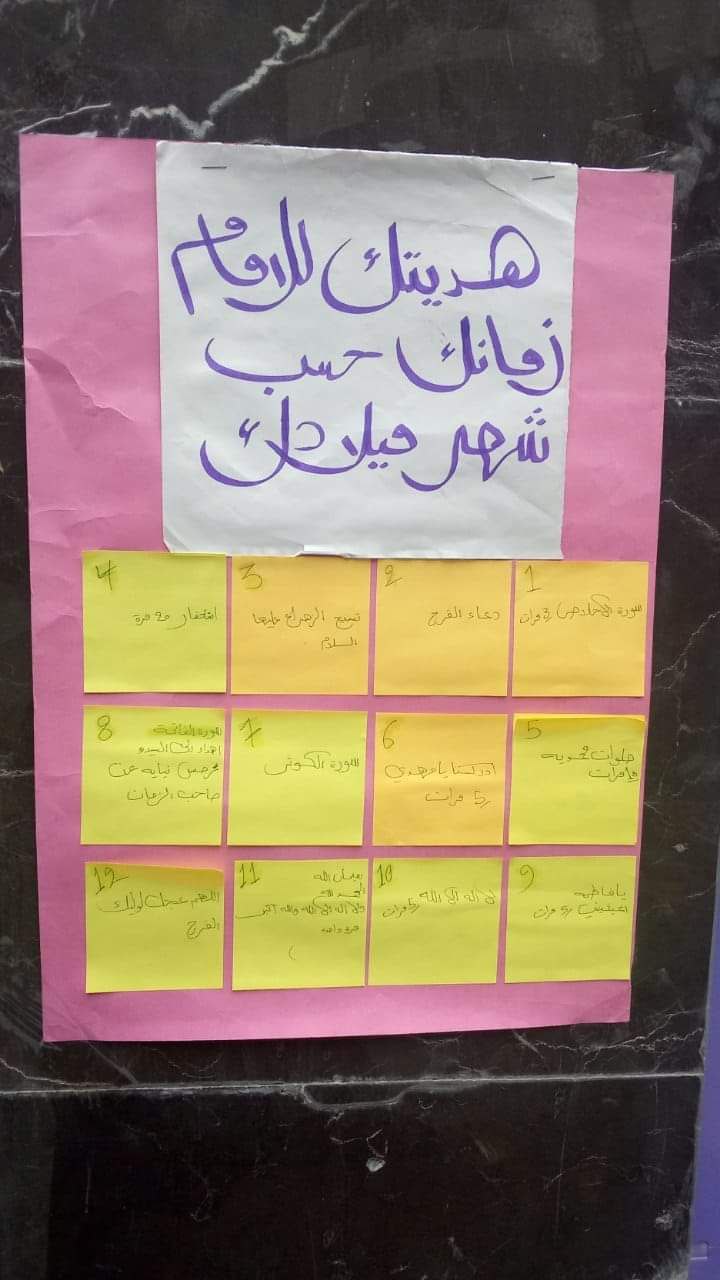 هديتك للامام
زمانك حسب
شهر ميلادك
1
سورة الاخلاص 3 مرات
2
دعاء الفرج
3
تسبيح الزهراء عليها
السلام
4
استغفار مرة
5
صلوات محمدية
مرات
6
ادركنا يا مهدي
5 مرات
7
سورة الكوثر
8
سورة الفاتحة
اهداء الى السيد
محمد نيابه عن
صاحب الزمان
9
يا فاطمه
اغيثيني 5 مرات
10
لا اله الا الله 5 مرات
11
سبحان الله
الحمد لله
ولا اله الا الله والله اكبر
مرة واحدة
12
اللهم عجل لوليك
الفرج